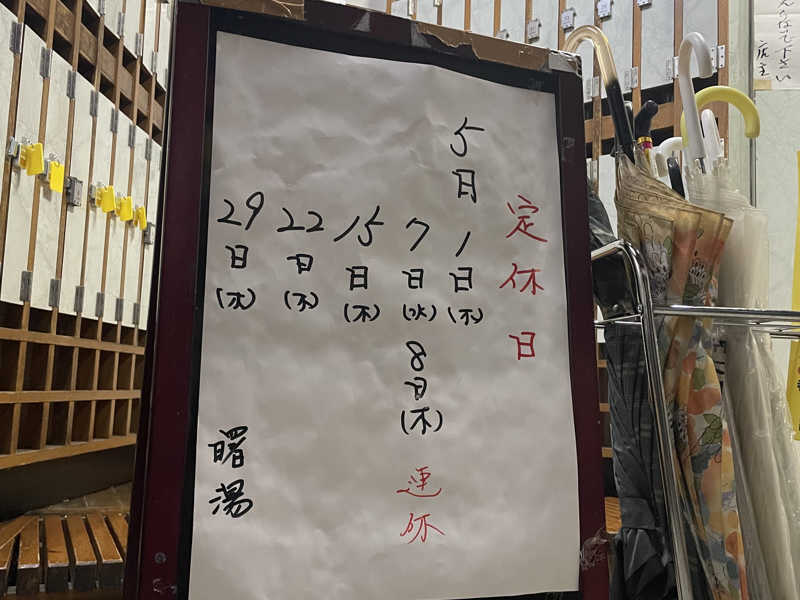 下さい
店主
定休日
5月
1日(木)
7日(水)
8日(木)
連休
15日(木)
22日(木)
29日(木)
曙湯